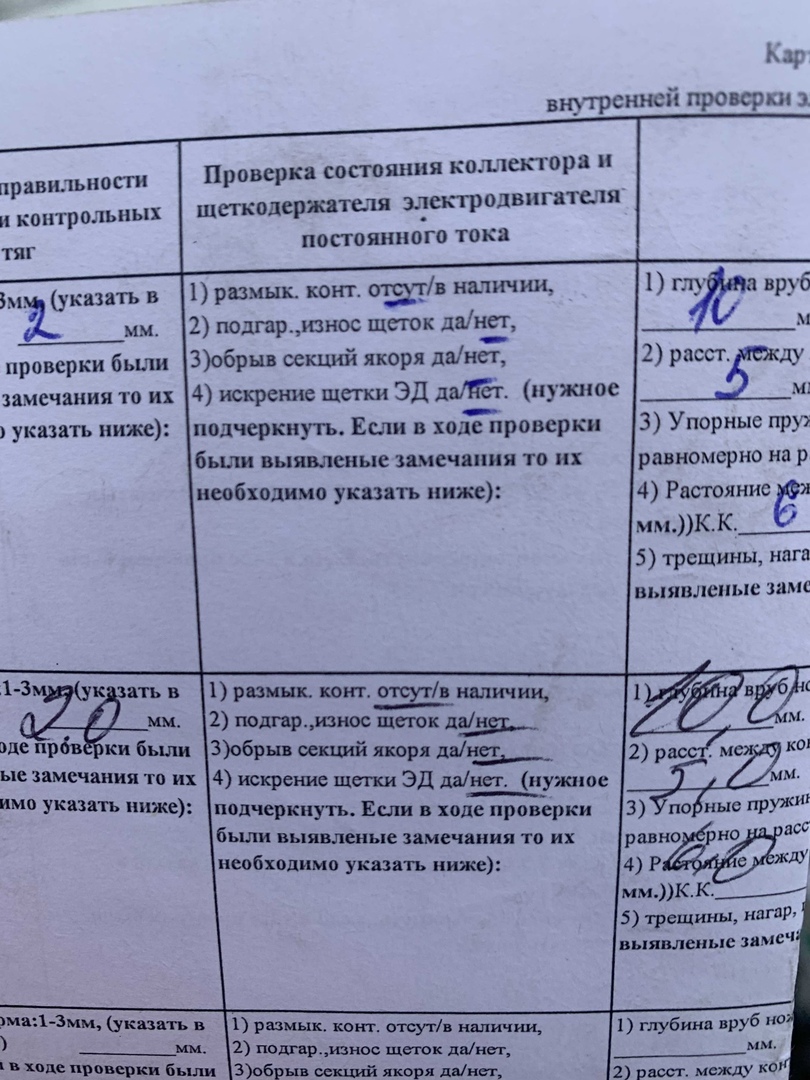 внутренней проверки
правильности
и контрольных
тяг
Проверка состояния коллектора и
щеткодержателя электродвигателя
постоянного тока
3мм, (указать в
2 мм.
проверки были
замечания то их
указать ниже):
1) размык. конт. отсут/в наличии,
2) подгар.,износ щеток да/нет,
3)обрыв секций якоря да/нет,
4) искрение щетки ЭД да/нет. (нужное
подчеркнуть. Если в ходе проверки
были выявленые замечания то их
необходимо указать ниже):
1) глубина вруб
10
2) расст. между
5 мм
3) Упорные пруж
равномерно на р
4) Растояние меж
мм.))К.К. 6
5) трещины, нага
выявленые заме
:1-3мм,(указать в
2,0 мм.
ходе проверки были
ые замечания то их
димо указать ниже):
1) размык. конт. отсут/в наличии,
2) подгар.,износ щеток да/нет,
3)обрыв секций якоря да/нет,
4) искрение щетки ЭД да/нет. (нужное
подчеркнуть. Если в ходе проверки
были выявленые замечания то их
необходимо указать ниже):
1) глубина вруб но
10,0 мм.
2) расст. между кон
5,0 мм.
3) Упорные пружин
равномерно на расс
6,0
4) Растояние между
мм.))К.К.
5) трещины, нагар,
выявленые замеча
рма:1-3мм, (указать в
) мм.
в ходе проверки были
1) размык. конт. отсут/в наличии,
2) подгар.,износ щеток да/нет,
3)обрыв секций якоря да/нет,
1) глубина вруб нож
мм.
2) расст. между кон